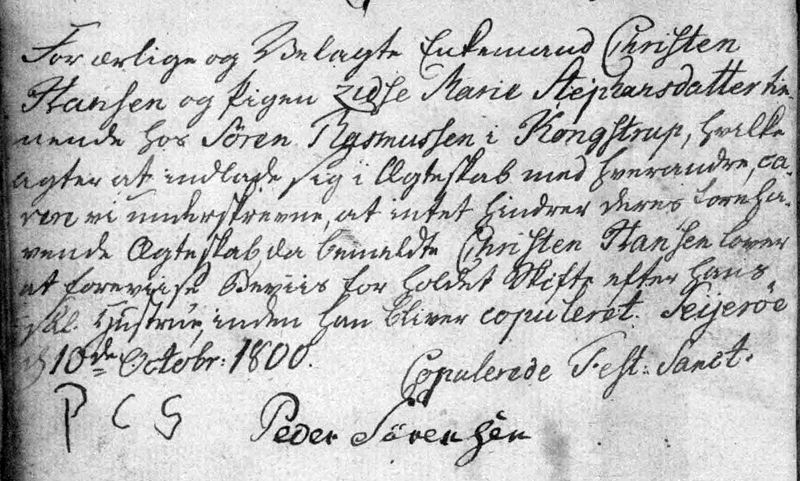 For ærlige og Velagte Enkemand Christen
Hansen og Pigen Zidse Marie Stephansdatter tie-
nende hos Sören Rasmussen i Kongstrup, hvilke
agter at indlade sig i Ægteskab med hverandre, ca-
vere vi underskrevne, at intet hindrer deres foreha-
vende Ægteskab, da bemeldte Christen Hansen lover
at foreviise Beviis for holdet Skifte efter hans
Sal. Hustrue, inden han bliver copuleret. Seijeröe
d 10de Octobr: 1800.
Copulerede Fest: Sanct.
P C S
Peder Sörensen